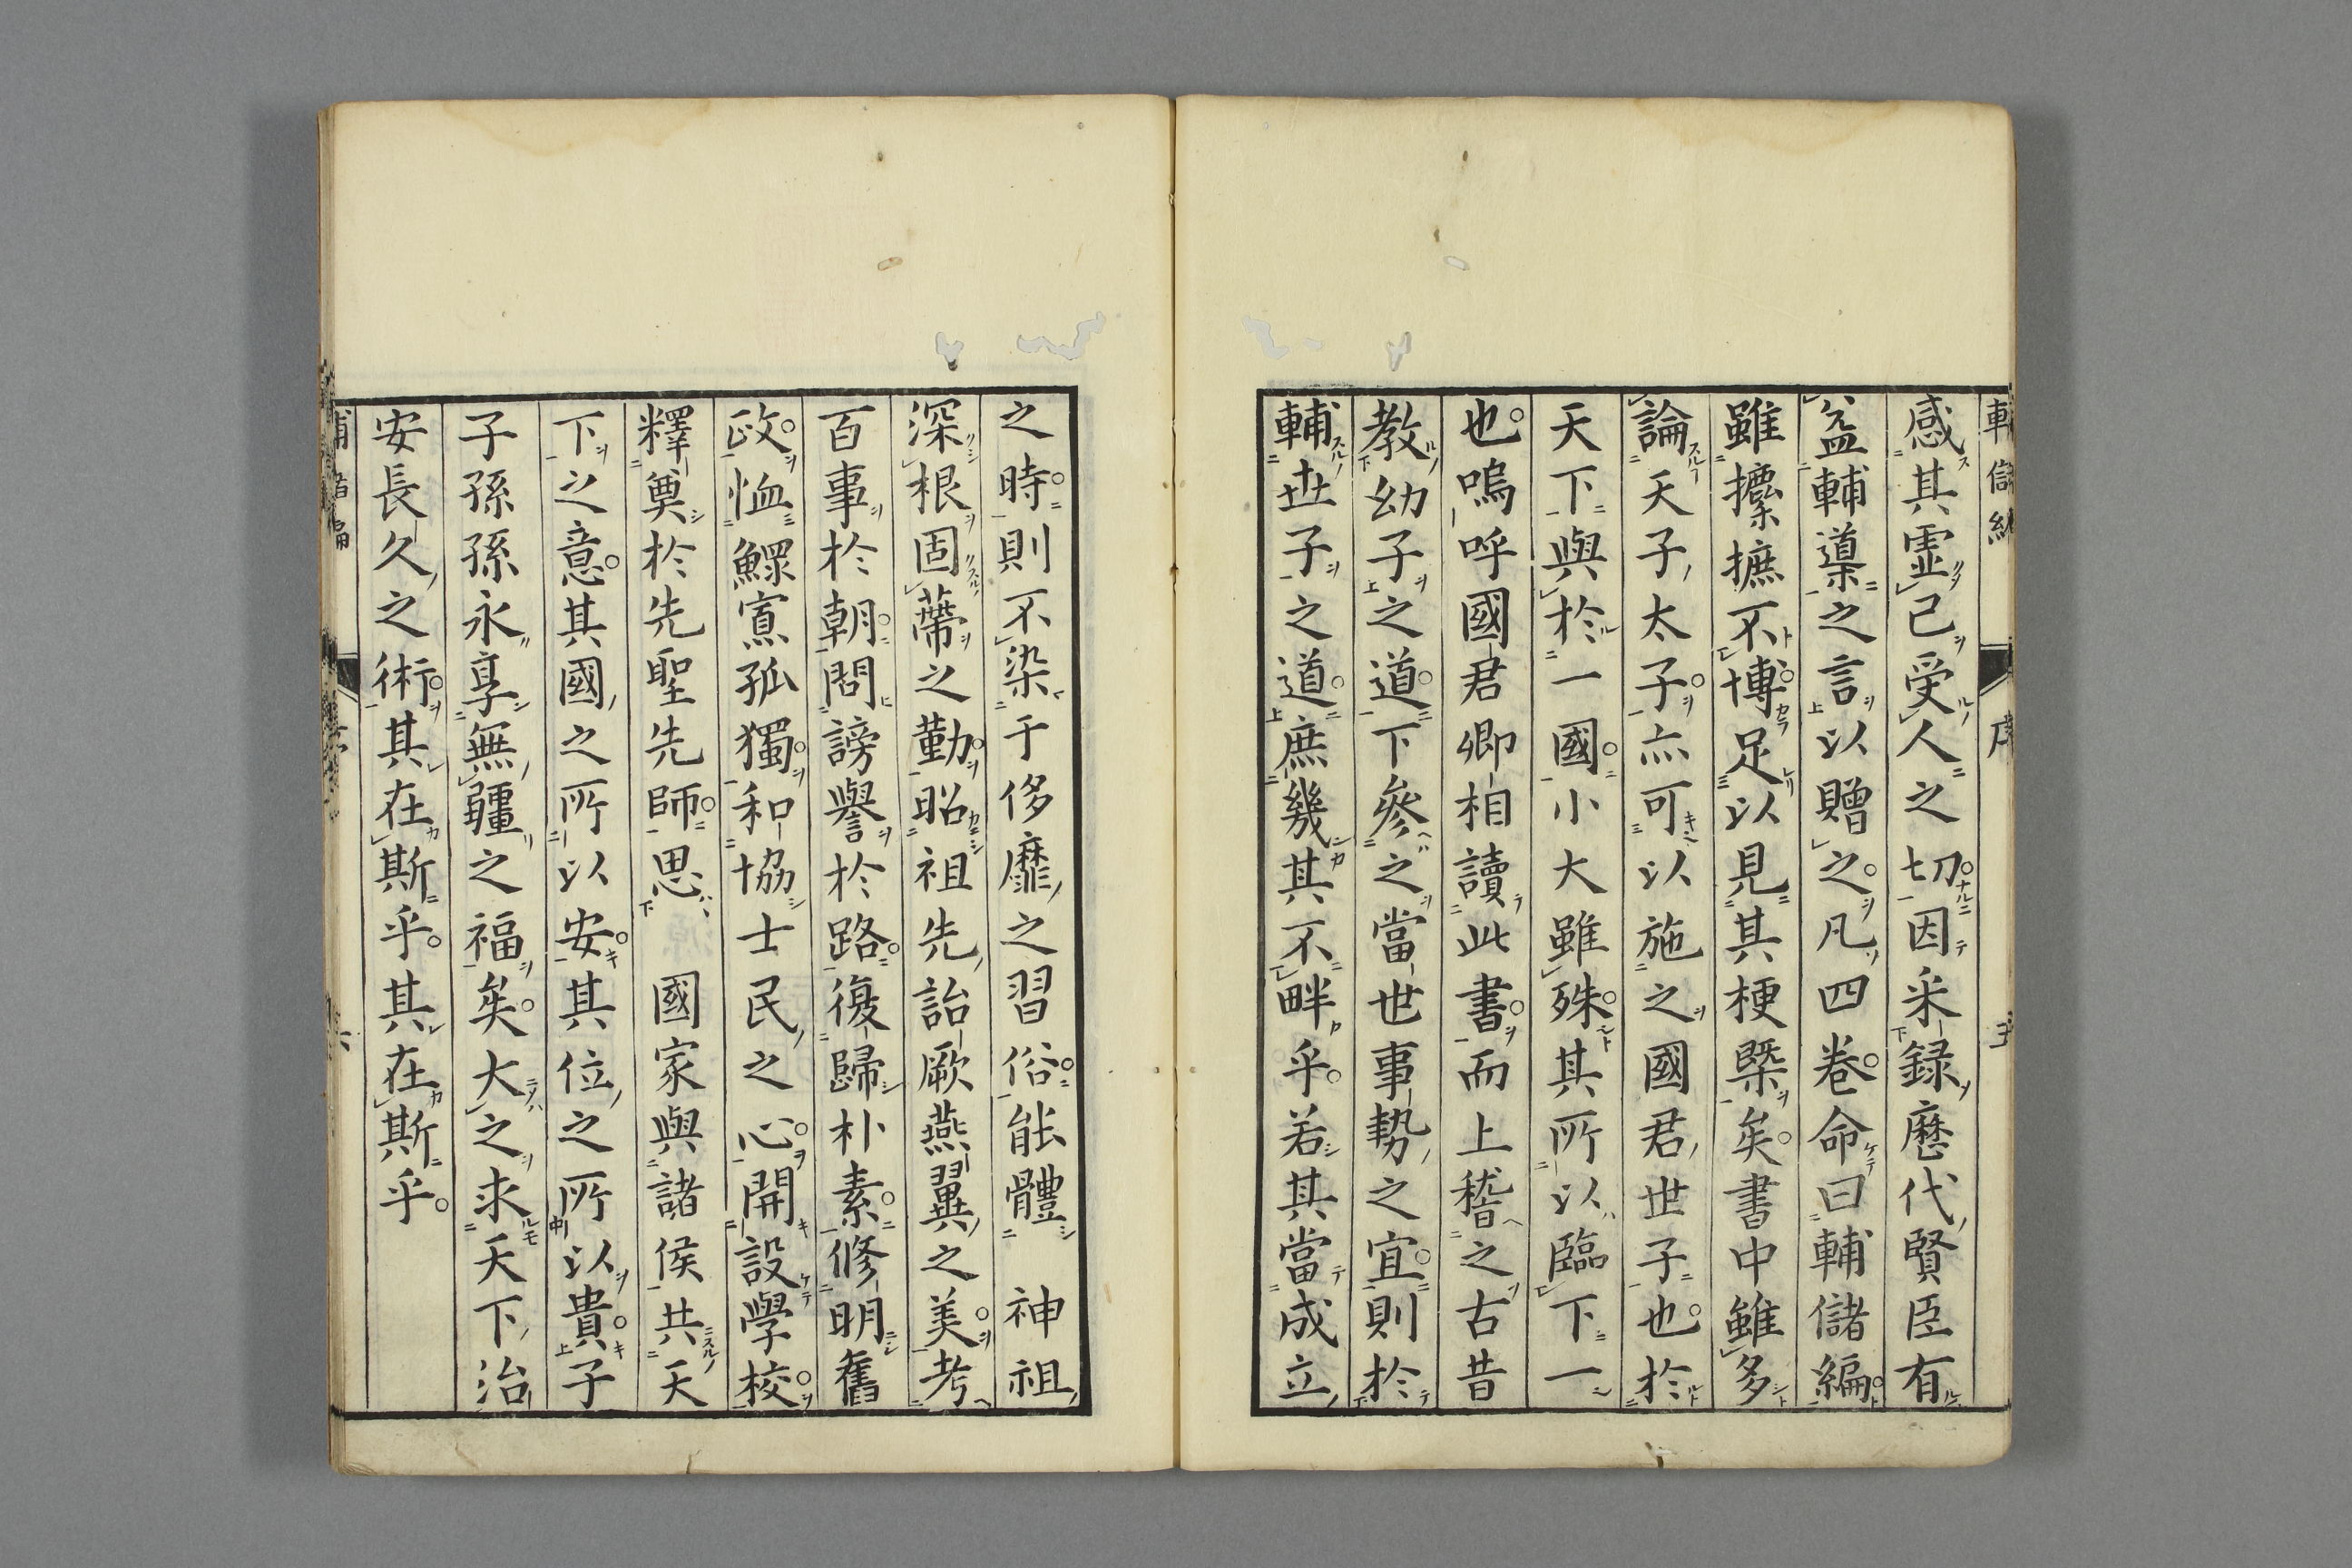 感其虛己受人之切因采錄歷代賢臣有
益輔導之言以贈之凡四卷命曰輔儲編
雖攗摭不博足以見其梗槩矣書中雖多
論天子太子亦可以施之國君世子也於
天下與於一國小大雖殊其所以臨下一
也嗚呼國君卿相讀此書而上稽之古昔
教幼子之道下參之當世事勢之宜則於
輔世子之道庶幾其不畔乎若其當成立
之時則不染于侈靡之習俗能體 神祖
深根固蔕之勤昭祖先詒厥燕翼之美考
百事於朝問謗譽於路復歸朴素修明舊
政恤鰥寡孤獨和協士民之心開設學校
釋奠於先聖先師思 國家與諸侯共天
下之意其國之所以安其位之所以貴子
子孫孫永享無疆之福矣大之求天下治
安長久之術其在斯乎其在斯乎